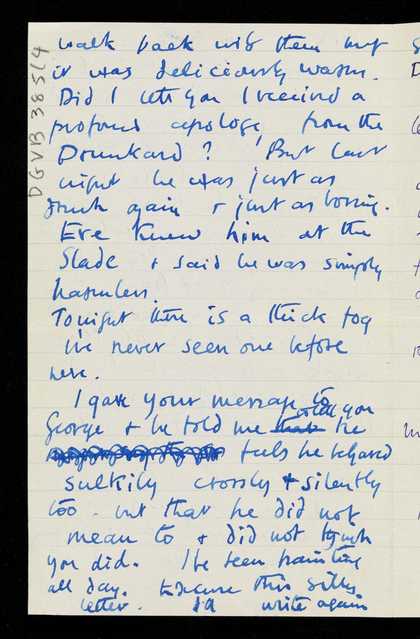 walk back with them but
it was deliciously warm.
Did I tell you I received a
profound apology from the
Drunkard? But last
night he was just as
drunk again + just as boring.
Eve knew him at the
Slade + said he was simply
harmless.
Tonight there is a thick fog
I've never seen one before
here.
I gave your message to
George + he told me that to tell you he
feels he behaved
sulkily crossly + silently
too. but that he did not
mean to + did not think
you did. I've been painting
all day. Excuse this silly
letter. I'll write again
DGVB 385/4